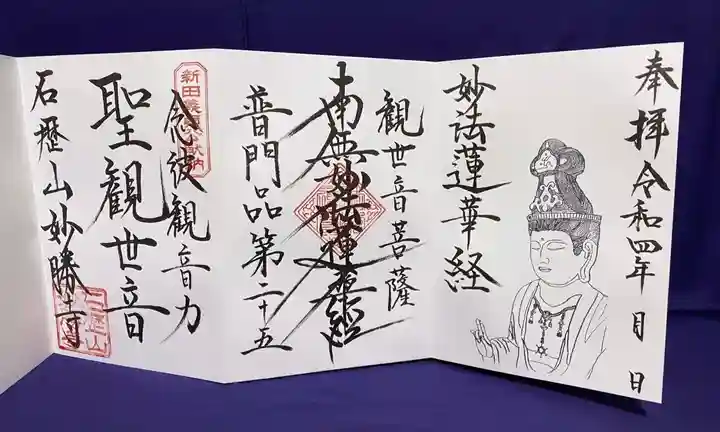 奉拝令和四年 月 日
妙法蓮華経
観世音菩薩
南無妙法蓮華経
普門品第二十五
念彼観音力
聖観世音
石歴山妙勝寺